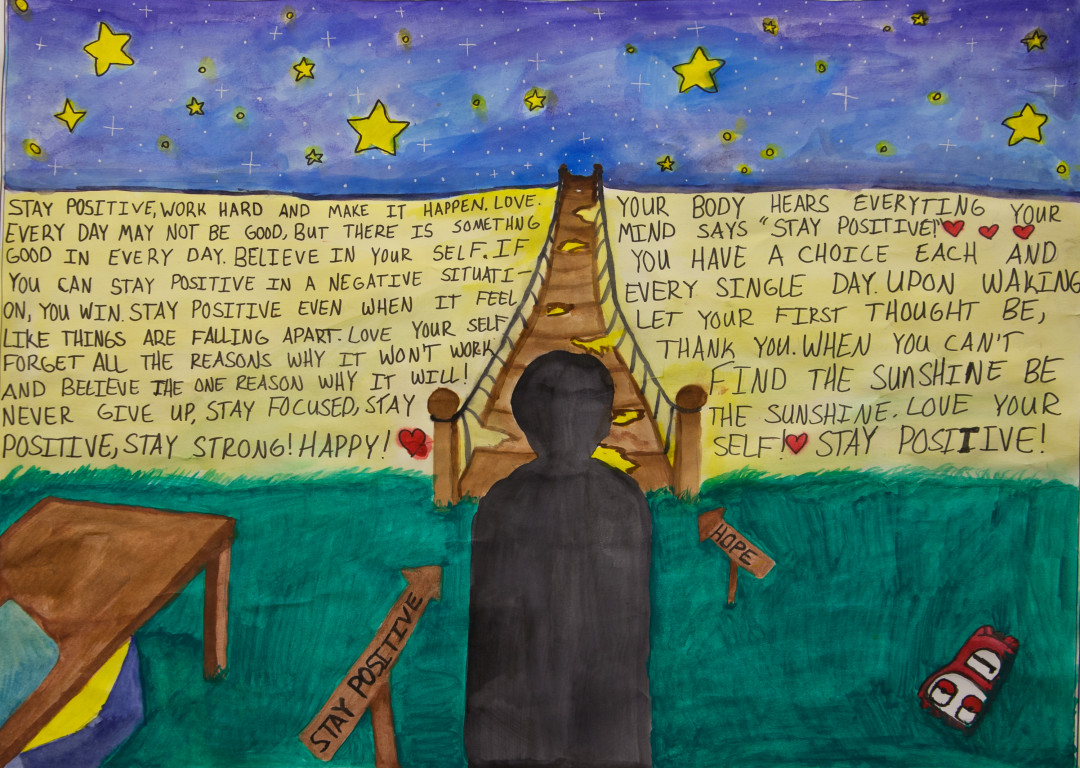 STAY POSITIVE, WORK HARD AND MAKE IT HAPPEN. LOVE.
EVERY DAY MAY NOT BE GOOD, BUT THERE IS SOMETHNG
GOOD IN EVERY DAY. BELIEVE IN YOUR SELF. IF
YOU CAN STAY POSITIVE IN A NEGATIVE SITUATI-
ON, YOU WIN. STAY POSITIVE EVEN WHEN IT FEEL
LIKE THINGS ARE FALLING APART. LOVE YOUR SELF
FORGET ALL THE REASONS WHY IT WON'T WORK
AND BELIEVE THE ONE REASON WHY IT WILL!
NEVER GIVE UP, STAY FOCUSED, STAY
POSITIVE, STAY STRONG! HAPPY!
YOUR BODY HEARS EVERYTING YOUR
MIND SAYS "STAY POSITIVE!"
YOU HAVE A CHOICE EACH AND
EVERY SINGLE DAY. UPON WAKING
LET YOUR FIRST THOUGHT BE,
THANK YOU. WHEN YOU CAN'T
FIND THE SUNSHINE BE
THE SUNSHINE. LOVE YOUR
SELF! STAY POSITIVE!
STAY POSITIVE
HOPE